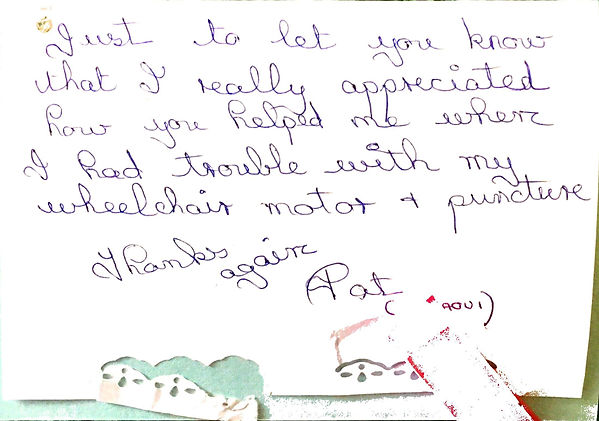 Just to let you know
that I really appreciated
how you helped me when
I had trouble with my
wheelchair motor + puncture
Thanks again
Pat